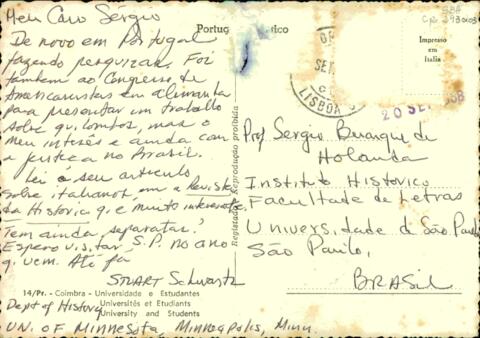 Meu Caro Sérgio
De novo em Portugal
fazendo pesquizas. Foi
tambem ao Congresso de
Americanistas em
para presentar um trabalho
sobre quilombos, mas o
meu interés e ainda com
a justiça no Brasil.
Lei o seu articulo
sobre italianos em a Revista
da Historia q. e muito interesante.
Tem ainda separatar?
Espero visitar S.P. no ano
q. vem. Até já
STUART Schwartz
Dept of History
UN. OF MINNESOTA, MINNEAPOLIS, MINN.
14/Pr. - Coimbra - Universidade e Estudantes
Université et Etudiants
University and Students
Portugal
Registado. Reprodução proibida
Impresso
em
Italia
LISBOA
20 SET
Prof Sergio Buarque de
Holanda
Instituto Historico
Facultade de Letras
Universidade de São Paulo
São Paulo,
BRASIL